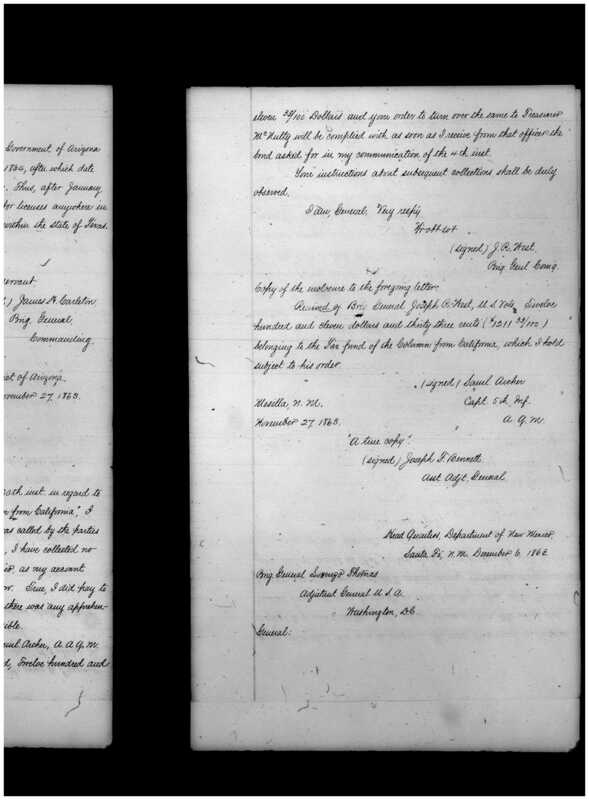 Government of Arizona
1862, after which date
. Thus, after January
for licenses anywhere in
within the state of Texas.
servant
) James H. Carleton
Brig. General,
Commanding
of Arizona
November 27 1863.
inst. in regard to
from California", I
was called by the parties
, I have collected no
as my account
True, I did pay to
there was any apprehen-
sible.
Archer, A. A. Q. M.
Twelve hundred and
eleven 33/100 Dollars and your order to turn over the same to Treasurer
McNulty will be complied with as soon as I receive from that officer the
bond asked for in my communication of the 4th inst.
Your instructions about subsequent collections shall be duly
observed.
I am, General, Very respy
Yr obt svt
(signed) J. R. West,
Brig Genl Comg.
Copy of the inclosure to the foregoing letter.
Received of Brig General Joseph R. West, U.S. Vols, Twelve
hundred and eleven dollars and thirty three cents ($1211 33/100.)
belonging to the Tax fund of the Column from California, which I hold
subject to his order.
(signed) Saml Archer
Mesilla, N. M. Capt. 5th Inf.
November 27 1863. A. Q. M.
"A true copy".
(signed) Joseph F. Bennett
Asst Adjt. General.
Head Quarters, Department of New Mexico,
Santa Fé, N. M. December 6, 1862
Brig General Lorenzo Thomas
Adjutant General U.S.A.
Washington, D.C.
General: